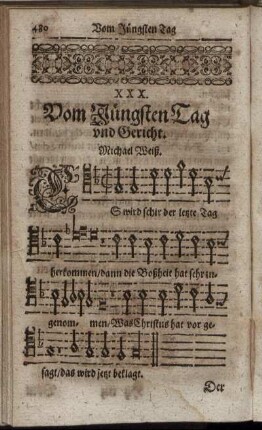 480 Vom Jüngsten Tag
XXX.
Vom Jüngsten Tag
vnd Gericht.
Michael Weiß.
ES wird schir der letzte Tag
herkommen/dann die Boßheit hat sehr zu-
genom- men/Was Christus hat vor ge-
sagt/das wird jetzt beklagt.
Der